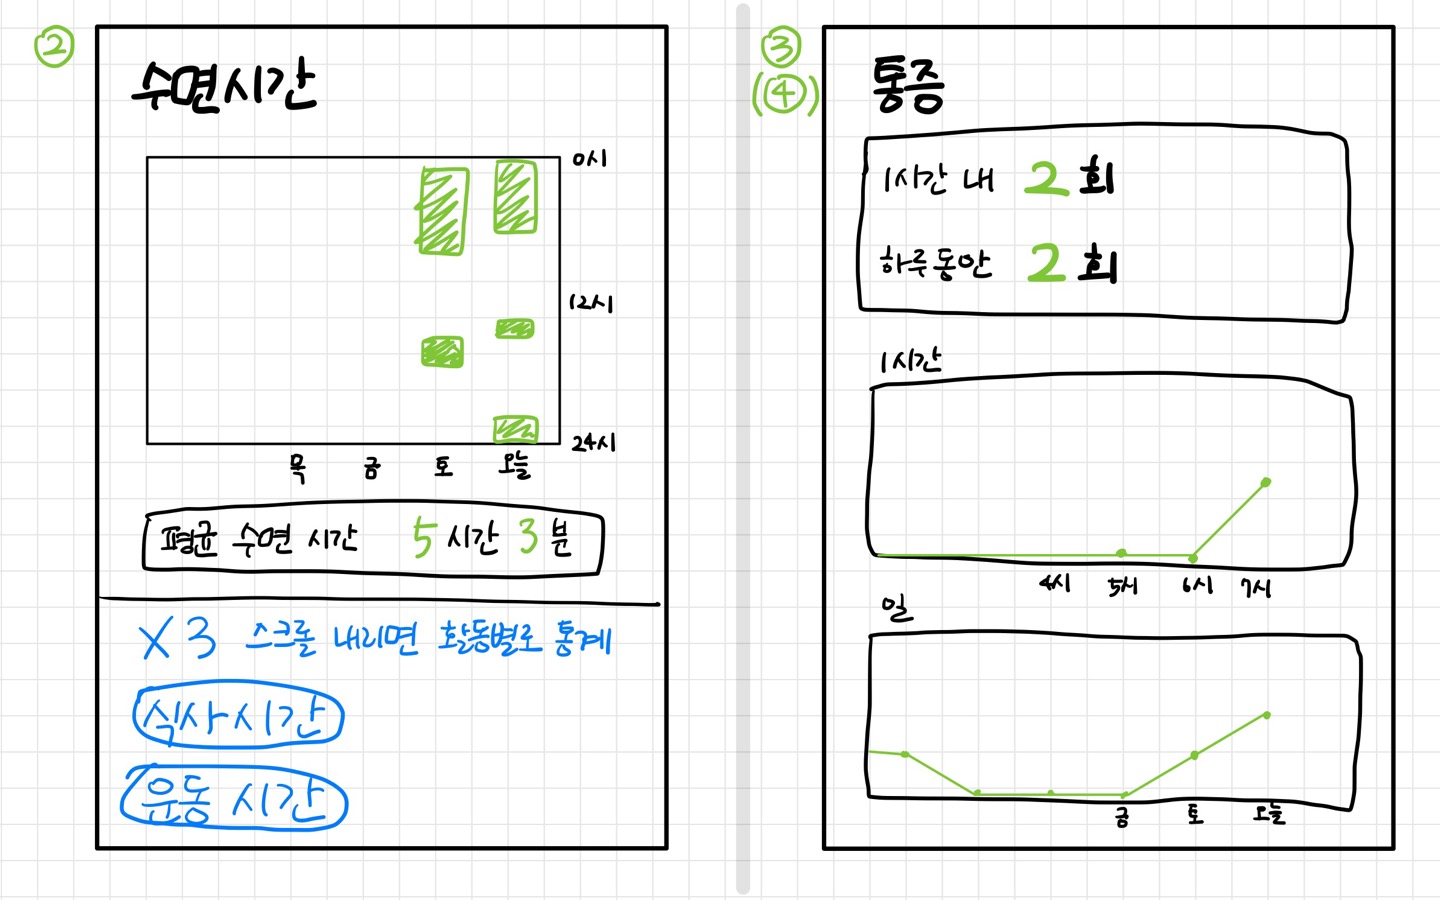 ②
수면시간
0시
12시
24시
목 금 토 오늘
평균 수면 시간 5시간 3분
X3 스크롤 내리면 활동별로 통계
식사시간
운동 시간
③
(④)
통증
1시간 내 2회
하루동안 2회
1시간
4시 5시 6시 7시
일
금 토 오늘